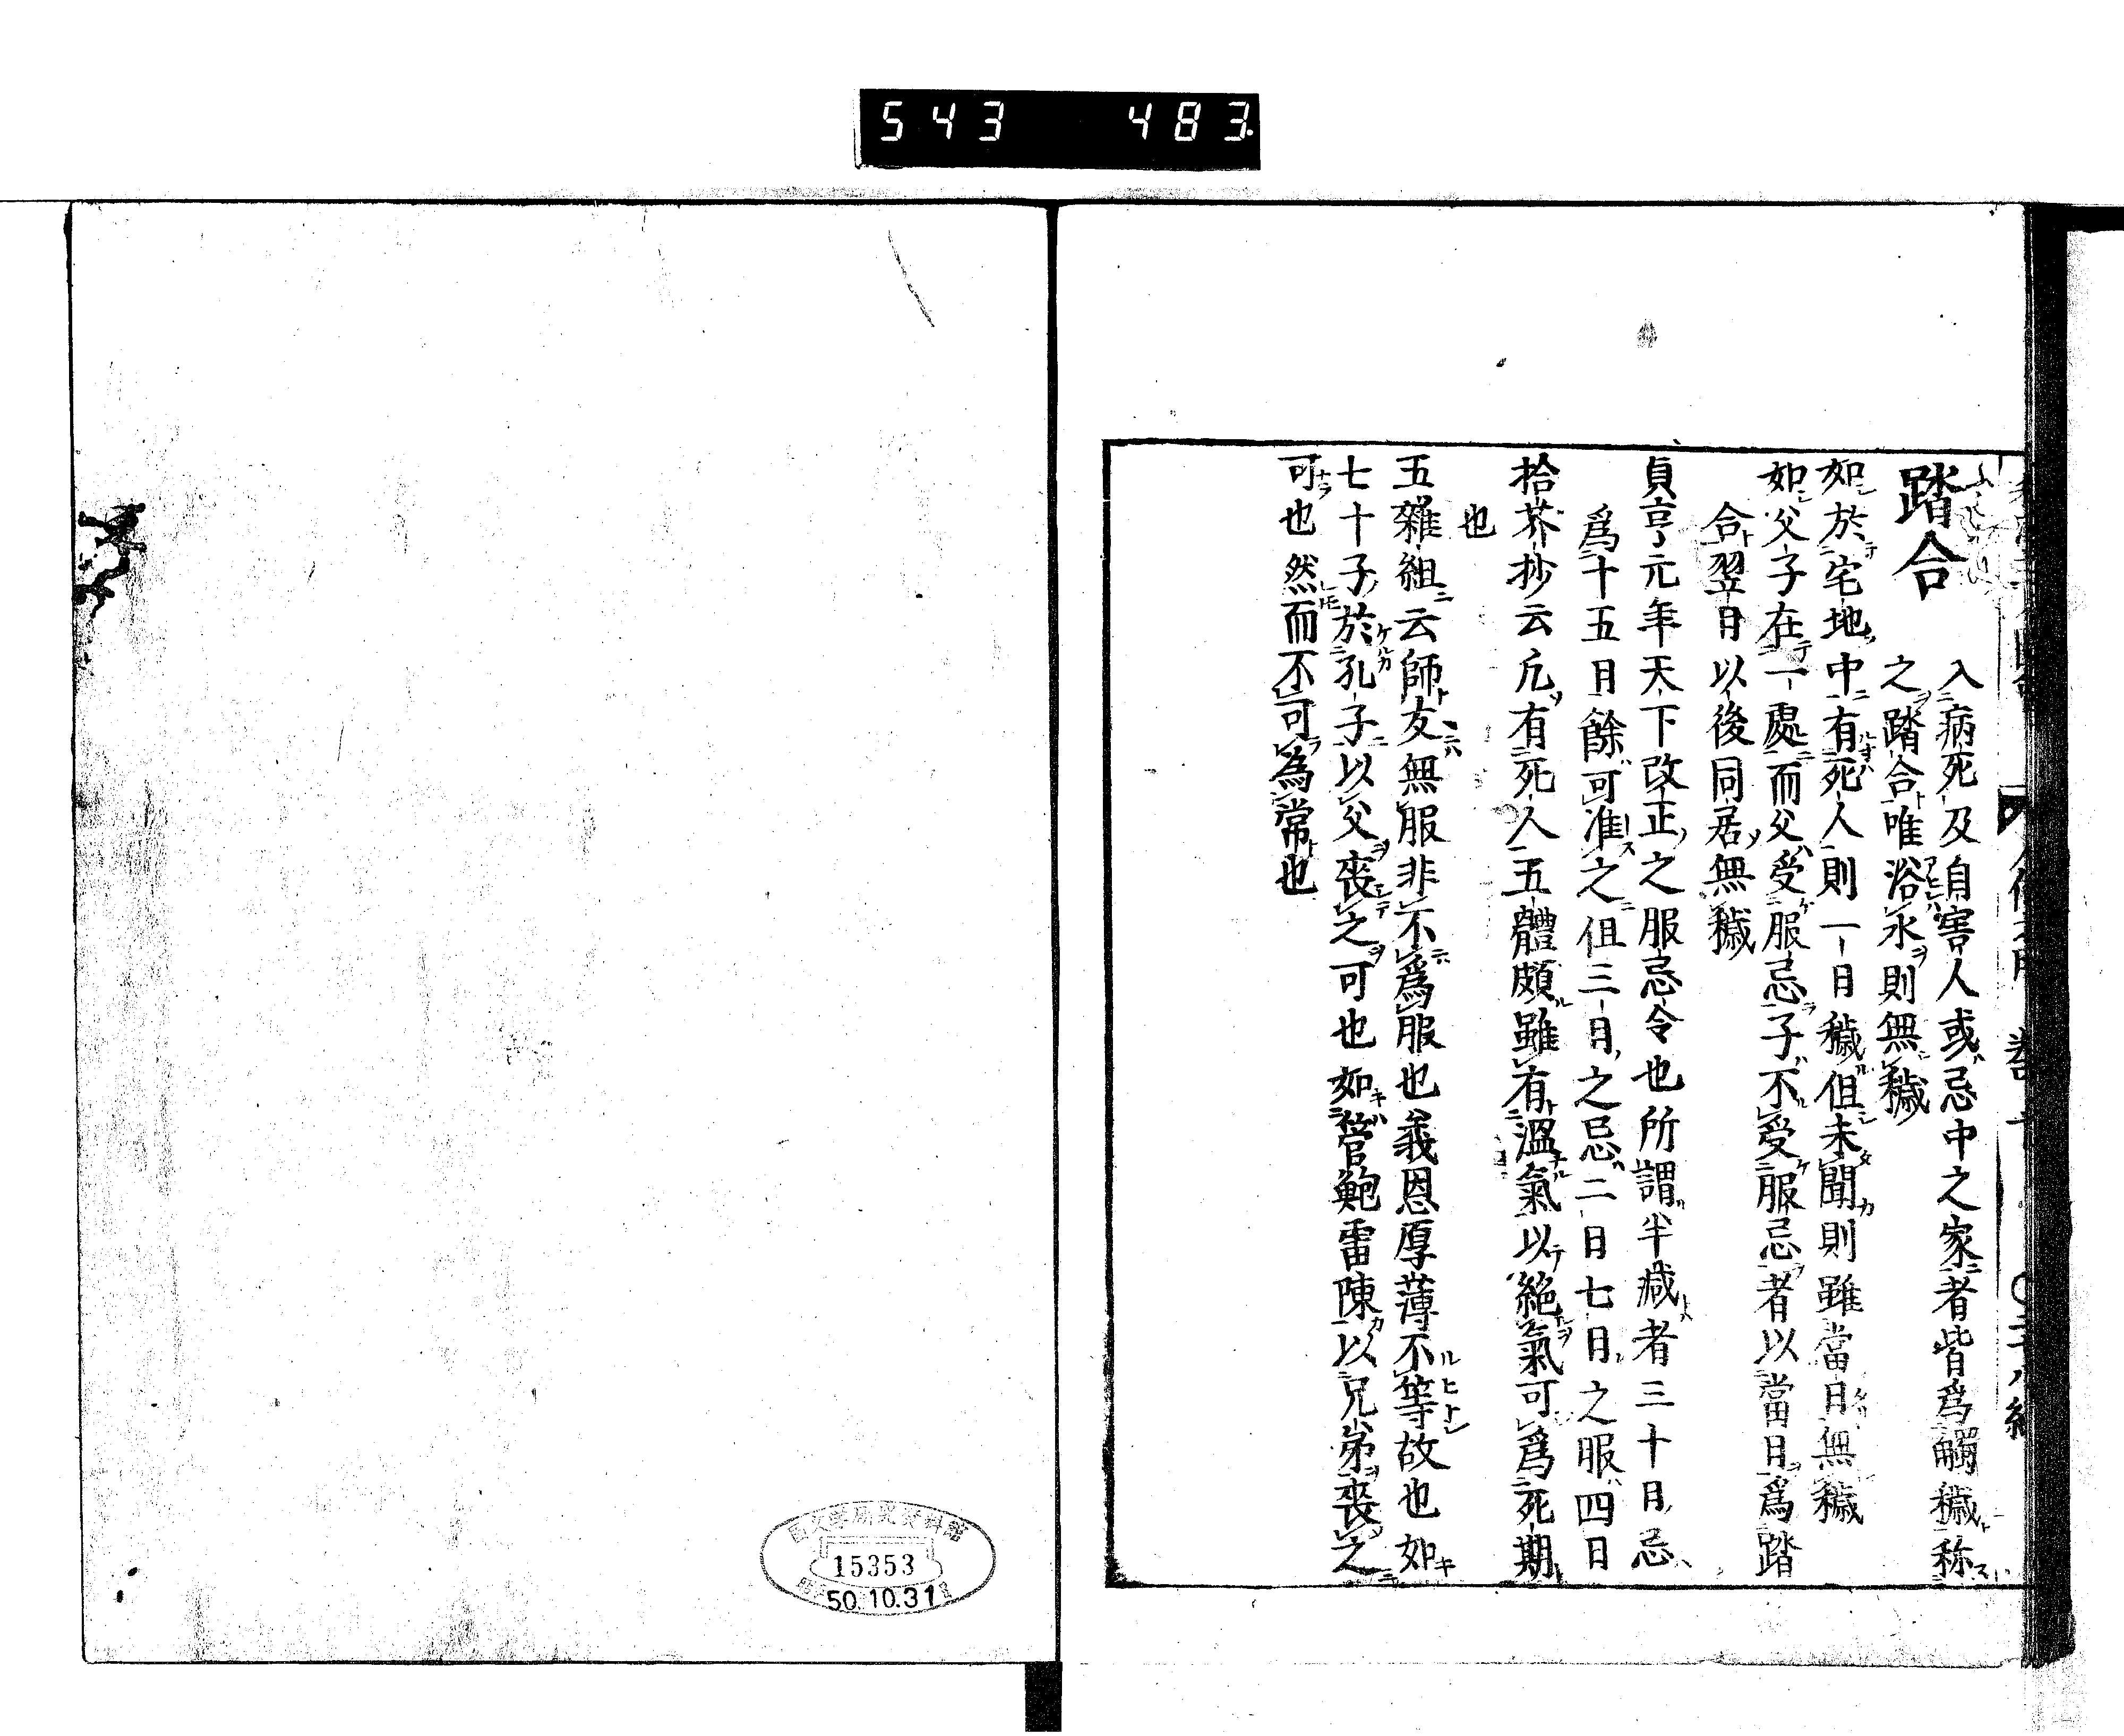 543 483
踏合
入病死及自害人或忌中之家者皆爲觸穢称
之踏合唯浴水則無穢
如於宅地中有死人則一日穢但未聞則雖當日無穢
如父子在一處而父受服忌子不受服忌者以當日爲踏
合翌日以後同居無穢
貞享元年天下改正之服忌令也所謂半减者三十日忌
爲十五日餘可准之但三日之忌二日七日之服四日
拾芥抄云凡有死人五體頗雖有溫氣以絶氣可爲死期
也
五雜組云師友無服非不爲服也義恩厚薄不等故也如
七十子於孔子以父喪之可也如管鮑雷陳以兄弟喪之
可也然而不可為常也
國文学研究資料館
15353
50.10.31